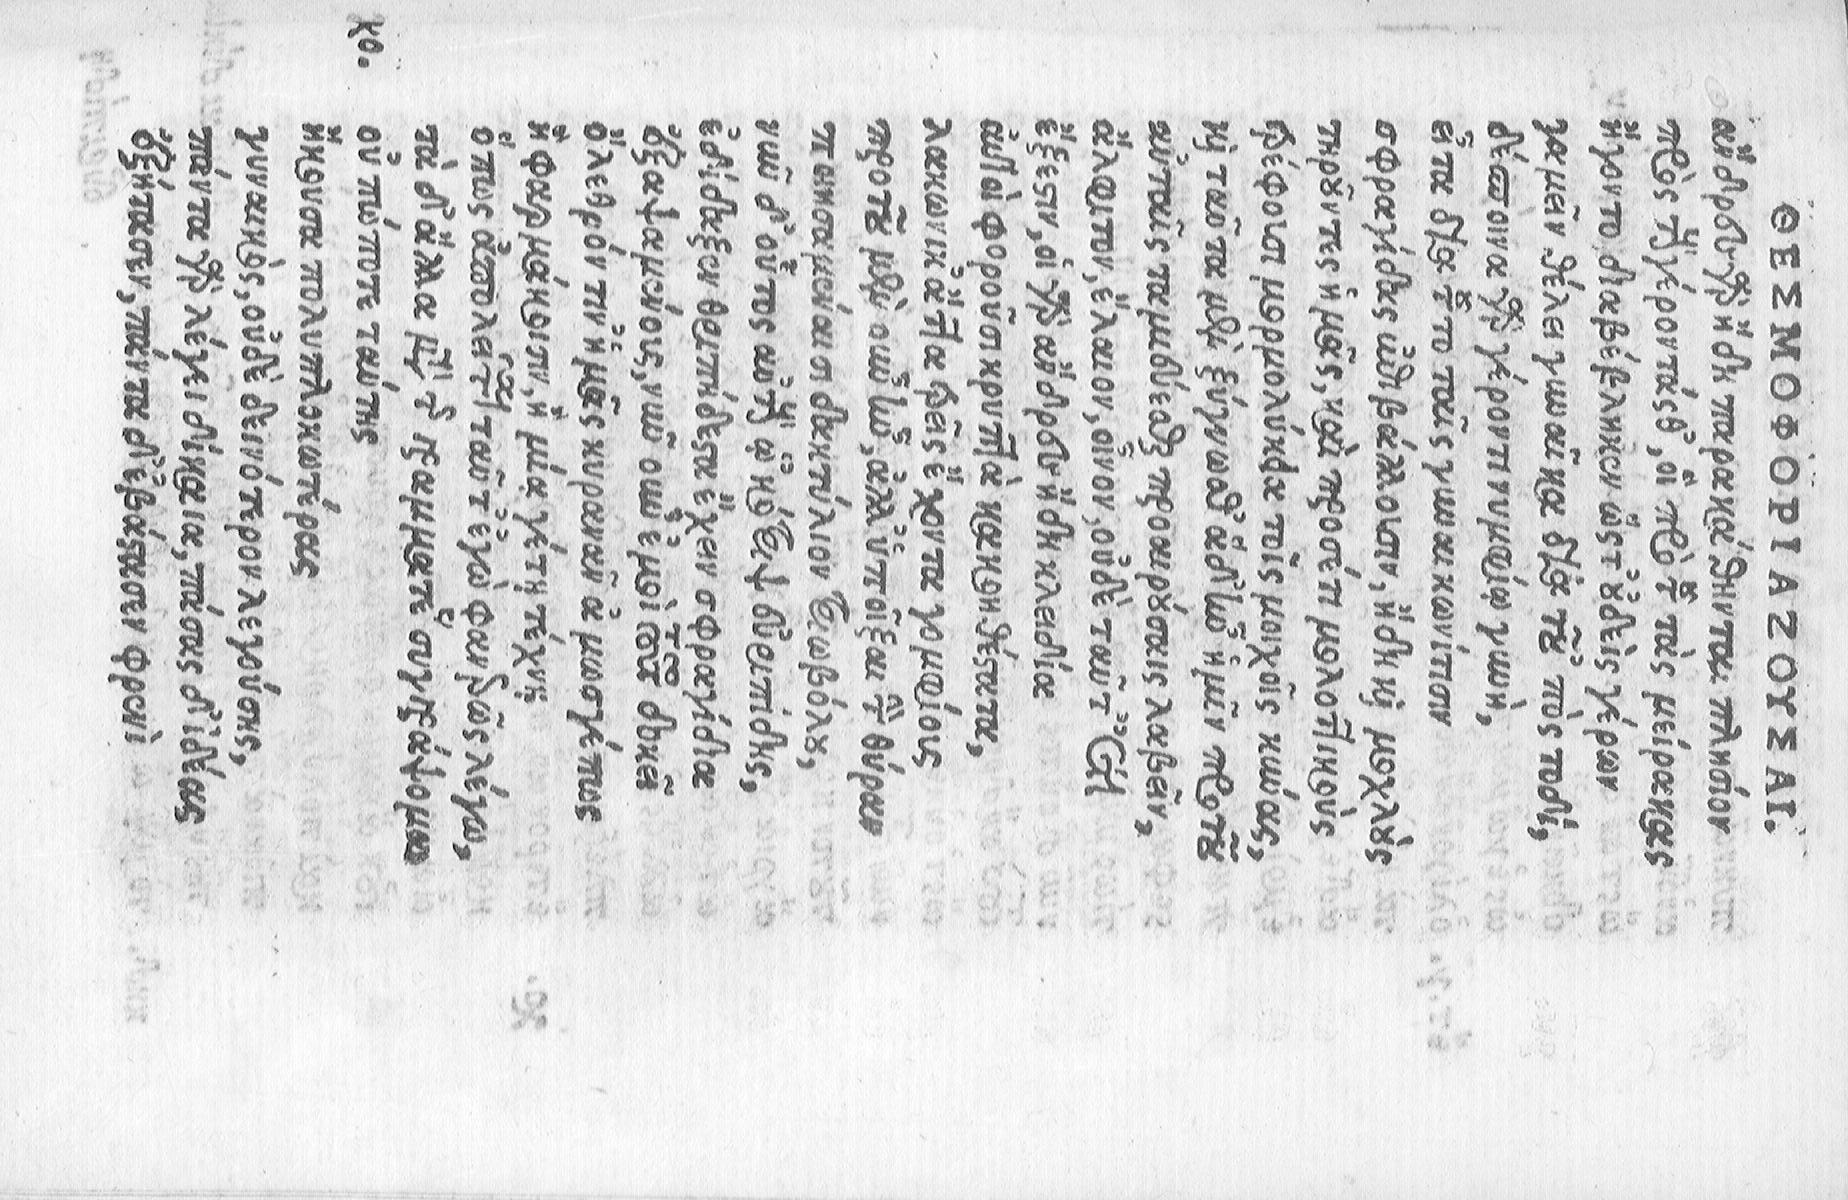 ΘΕΣΜΟΦΟΡΙΑΖΟΥΣΑΙ.
ἄνδρεσιν γὰρ ἤδη παρακάθηνται πλησίον
πρὸς τοὺς γέροντάς θ', οἳ πρὸ τοῦ τὰς μείρακας
ἤγοντο διαβέβληκεν ὥστ' οὐδεὶς γέρων
γαμεῖν θέλει γυναῖκα διὰ τοῦ πος τοδὶ,
δέσποινα γὰρ γέροντι νυμφίῳ γυνὴ,
εἶτα διὰ τοῦτο ταῖς γυναικωνίτισιν
σφραγίδας ἐμβάλλουσιν, ἤδη καὶ μοχλοὺς
τηροῦντες ἡμᾶς, καὶ προσέτι μολοττικοὺς
τρέφουσι μορμολύκεια τοῖς μοιχοῖς κύνας,
καὶ ταῦτα μὲν ξύγγνωσθ' ἃ δ' ἦν ἡμῖν πρὸ τοῦ
αὐταῖς ταμιεύεσθαι προαιρούσαις λαβεῖν,
ἄλφιτον, ἔλαιον, οἶνον, οὐδὲ ταῦτ' ἔτι
ἔξεστιν, οἱ γὰρ ἄνδρες ἤδη κλειδία
αὐτοὶ φοροῦσι κρυπτὰ κακοηθέστατα,
λακωνίκ' ἄττα τρεῖς ἔχοντα γομφίους
προτοῦ μὲν οὖν ἦν, ἀλλ' ὑποῖξαι τὴν θύραν
ποιησαμέναισι δακτύλιον τριωβόλου,
νῦν δ' οὗτος αὐτοὺς ᾠκότριψ εὐριπίδης,
ἐδίδαξεν θριπήδεστα ἔχειν σφραγίδια
ἐξαψαμένους, νῦν οὖν ἐμοὶ τοῦτο δοκεῖ
ὄλεθρόν τιν' ἡμᾶς κυρκανᾶν ἁμωσγέπως
ἢ φαρμάκοισιν, ἢ μιᾷ γέ τῳ τέχνῃ
ὅπως ἀπολεῖται ταῦτ' ἐγὼ φανερῶς λέγω,
τὰ δ' ἄλλα μετὰ τῆς γραμματέως συγγράψομαι
χο. οὐ πώποτε ταύτης
ἤκουσα πολυπλοκωτέρας
γυναικὸς, οὐδὲ δεινότερον λεγούσης,
πάντα γὰρ λέγει δίκαια, πάσας δ' ἰδέας
ἐξήτασεν, πάντα δ' ἐβάστασεν φρενὶ